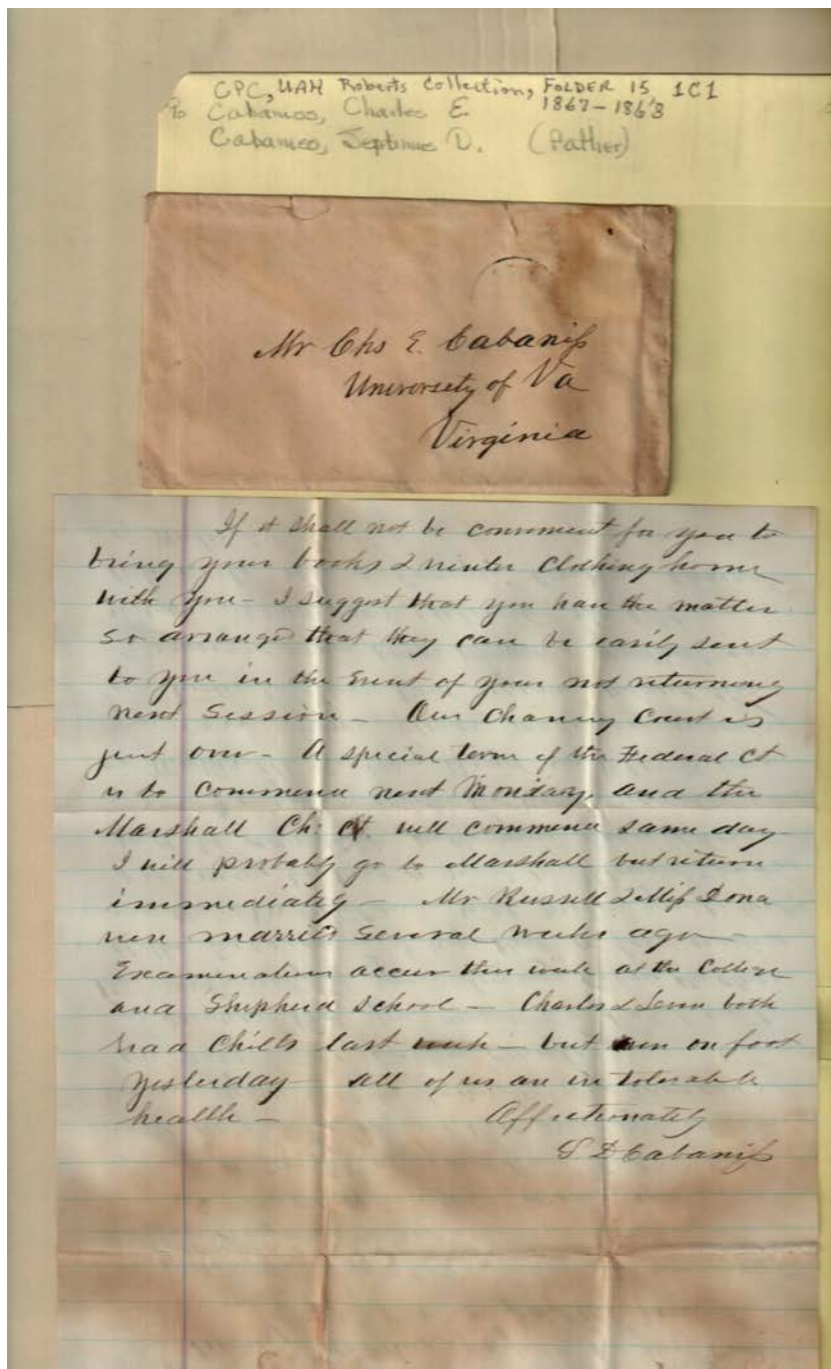 CPC, UAH Roberts Collection, FOLDER 15 1C1
To Cabaniss, Charles E. 1867-1868
Cabaniss, Septimus D. (Father)
Mr Chs E. Cabaniſs
University of Va
Virginia
If it shall not be convenient for you to
bring your books & winter clothing home
with you - I suggest that you have the matter
so arranged that they can be easily sent
to you in the event of your not returning
next Session - Our Chancery Court is
just over - A special term of the Federal Ct
is to commence next Monday, and the
Marshall Ch: Ct. will commence same day
I will probably go to Marshall but return
immediately - Mr Russell & Miſs Dona
were married several weeks ago -
Examinations occur this week at the College
and Shepherd School - Charles & both
had Chills last week - but were on foot
yesterday - all of us are in tolerable
health - Affectionately
S. D. Cabaniſs